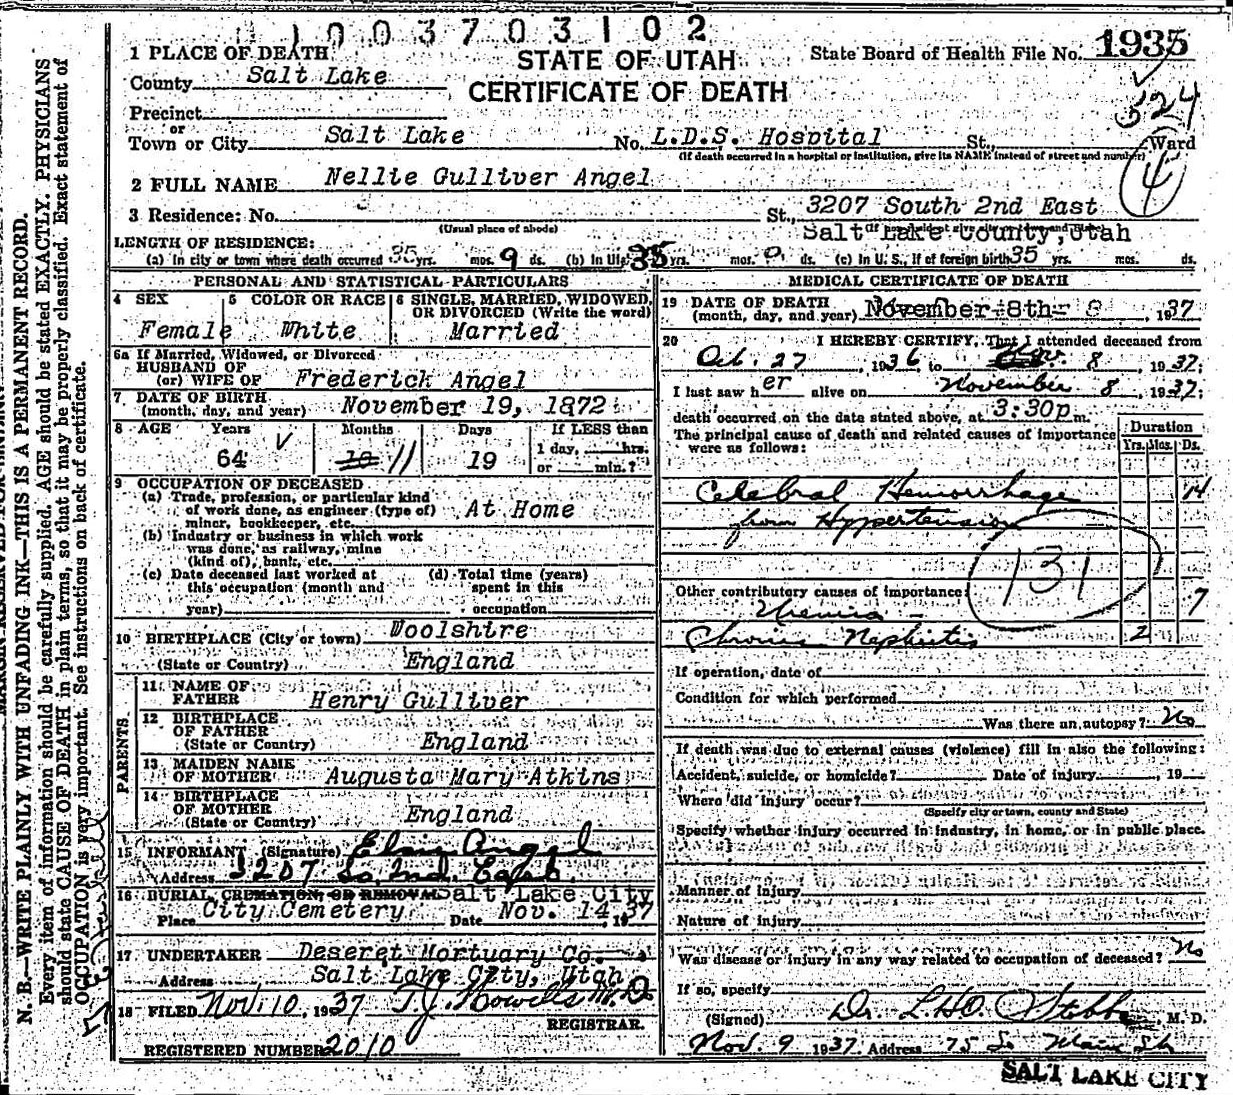 1003703102
1 PLACE OF DEATH
STATE OF UTAH
CERTIFICATE OF DEATH
State Board of Health File No. 1935
County Salt Lake
524
Precinct
or
Town or City Salt Lake No. L.D.S. Hospital St., Ward
(If death occurred in a hospital or institution, give its NAME instead of street and number)
4
2 FULL NAME Nellie Gulliver Angel
3 Residence: No. St., 3207 South 2nd East
(Usual place of abode)
Salt Lake County, Utah
LENGTH OF RESIDENCE:
(a) In city or town where death occurred 35 yrs. mos. 9 ds. (b) In 35 yrs. mos. 0 ds. (c) In U. S., if of foreign birth 35 yrs. mos. ds.
PERSONAL AND STATISTICAL PARTICULARS
4 SEX
Female
5 COLOR OR RACE
White
6 SINGLE, MARRIED, WIDOWED, OR DIVORCED (Write the word)
Married
6a If Married, Widowed, or Divorced
HUSBAND OF
(or) WIFE OF Frederick Angel
7 DATE OF BIRTH
(month, day, and year) November 19, 1872
8 AGE Years Months Days If LESS than
64 10 11 19 1 day, hrs.
or min.?
9 OCCUPATION OF DECEASED
(a) Trade, profession, or particular kind
of work done, as engineer (type of)
miner, bookkeeper, etc. At Home
(b) Industry or business in which work
was done, as railway, mine
(kind of), bank, etc.
(c) Date deceased last worked at
this occupation (month and
year)
(d) Total time (years)
spent in this
occupation
10 BIRTHPLACE (City or town) Woolshire
(State or Country) England
PARENTS
11 NAME OF
FATHER Henry Gulliver
12 BIRTHPLACE
OF FATHER
(State or Country) England
13 MAIDEN NAME
OF MOTHER Augusta Mary Atkins
14 BIRTHPLACE
OF MOTHER
(State or Country) England
15 INFORMANT (Signature) Elsie Angel
Address 3207 So 2nd East
16 BURIAL, CREMATION, OR REMOVAL Salt Lake City
Place City Cemetery Date Nov. 14, 1937
17 UNDERTAKER Deseret Mortuary Co.
Address Salt Lake City, Utah
18 FILED Nov. 10, 1937 T. J. Howells M.D.
REGISTRAR.
REGISTERED NUMBER 2010
MEDICAL CERTIFICATE OF DEATH
19 DATE OF DEATH
(month, day, and year) November 8th 8, 1937
20 I HEREBY CERTIFY, That I attended deceased from
Oct. 27, 1936 to Nov. 8, 1937;
I last saw her alive on November 8, 1937;
death occurred on the date stated above, at 3:30p m.
The principal cause of death and related causes of importance
were as follows:
Duration
Yrs. Mos. Ds.
Celebral Hemorrhage 14
from Hypertension
131
Other contributory causes of importance:
Uremia 7
Chronic Nephritis 2
If operation, date of
Condition for which performed
Was there an autopsy? No
If death was due to external causes (violence) fill in also the following:
Accident, suicide, or homicide? Date of injury, 19
Where did injury occur?
(Specify city or town, county and State)
Specify whether injury occurred in industry, in home, or in public place.
Manner of injury
Nature of injury
Was disease or injury in any way related to occupation of deceased? No
If so, specify
(Signed) Dr. L.H.O. M. D.
Nov. 9 1937. Address 75 So Main St
SALT LAKE CITY
N. B.—WRITE PLAINLY WITH UNFADING INK—THIS IS A PERMANENT RECORD.
Every item of information should be carefully supplied. AGE should be stated EXACTLY. PHYSICIANS
should state CAUSE OF DEATH in plain terms, so that it may be properly classified. Exact statement of
OCCUPATION is very important. See instructions on back of certificate.